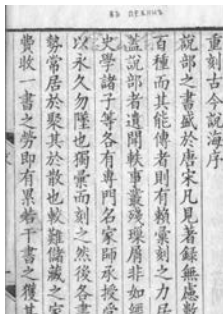 ВЪ ПЕКИНѢ
重刻古今說海序
說部之書盛於唐宋凡見著錄無慮數
百種而其能傳者則有賴彙刻之力居
蓋說部者遺聞軼事叢殘璅屑非如經
史學諸子等各有專門名家師承授受
以永久勿墜也獨彙而刻之然後各書
勢常居於聚其於散也較難儲藏之家
費收一書之勞即有累若干書之獲其